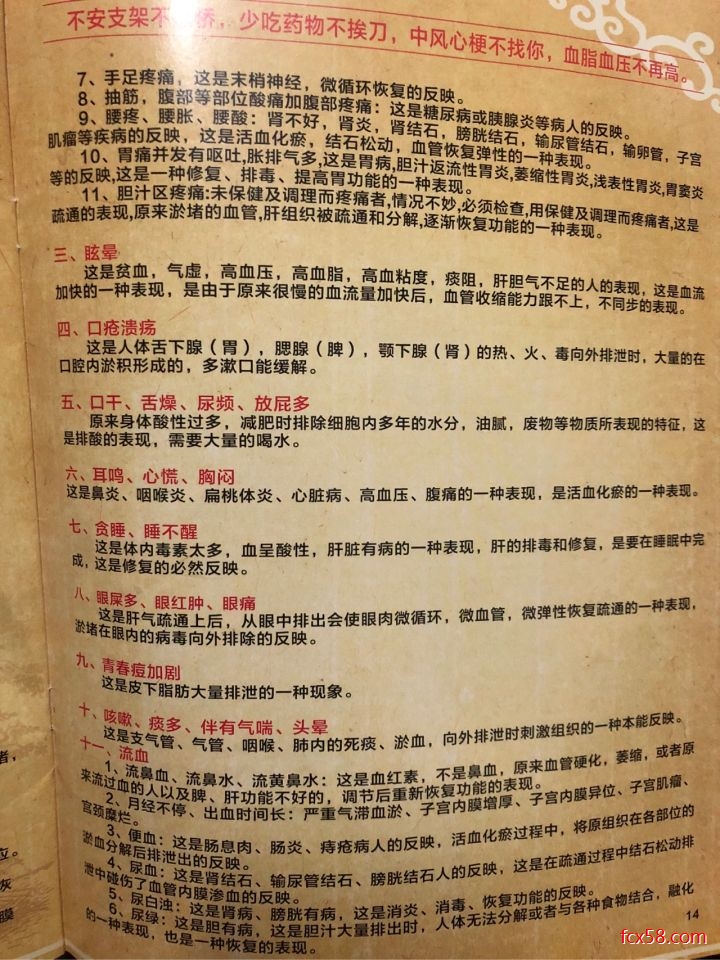 不安支架不 桥，少吃药物不挨刀，中风心梗不找你，血脂血压不再高。
7、手足疼痛，这是末梢神经，微循环恢复的反映。
8、抽筋，腹部等部位酸痛加腹部疼痛：这是糖尿病或胰腺炎等病人的反映。
9、腰疼、腰胀、腰酸：肾不好，肾炎，肾结石，膀胱结石，输尿管结石，输卵管，子宫
肌瘤等疾病的反映，这是活血化瘀，结石松动，血管恢复弹性的一种表现。
10、胃痛并发有呕吐,胀排气多,这是胃病,胆汁返流性胃炎,萎缩性胃炎,浅表性胃炎,胃窦炎
等的反映,这是一种修复、排毒、提高胃功能的一种表现。
11、胆汁区疼痛:未保健及调理而疼痛者,情况不妙,必须检查,用保健及调理而疼痛者,这是
疏通的表现,原来淤堵的血管,肝组织被疏通和分解,逐渐恢复功能的一种表现。
三、眩晕
这是贫血，气虚，高血压，高血脂，高血粘度，痰阻，肝胆气不足的人的表现，这是血流
加快的一种表现，是由于原来很慢的血流量加快后，血管收缩能力跟不上，不同步的表现。
四、口疮溃疡
这是人体舌下腺（胃），腮腺（脾），颚下腺（肾）的热、火、毒向外排泄时，大量的在
口腔内淤积形成的，多漱口能缓解。
五、口干、舌燥、尿频、放屁多
原来身体酸性过多，减肥时排除细胞内多年的水分，油腻，废物等物质所表现的特征，这
是排酸的表现，需要大量的喝水。
六、耳鸣、心慌、胸闷
这是鼻炎、咽喉炎、扁桃体炎、心脏病、高血压、腹痛的一种表现，是活血化瘀的一种表现。
七、贪睡、睡不醒
这是体内毒素太多，血呈酸性，肝脏有病的一种表现，肝的排毒和修复，是要在睡眠中完
成，这是修复的必然反映。
八、眼屎多、眼红肿、眼痛
这是肝气疏通上后，从眼中排出会使眼肉微循环，微血管，微弹性恢复疏通的一种表现，
淤堵在眼内的病毒向外排除的反映。
九、青春痘加剧
这是皮下脂肪大量排泄的一种现象。
十、咳嗽、痰多、伴有气喘、头晕
这是支气管、气管、咽喉、肺内的死痰、淤血，向外排泄时刺激组织的一种本能反映。
十一、流血
1、流鼻血、流鼻水、流黄鼻水：这是血红素，不是鼻血，原来血管硬化，萎缩，或者原
来流过血的人以及脾、肝功能不好的，调节后重新恢复功能的表现。
2、月经不停、出血时间长：严重气滞血淤、子宫内膜增厚、子宫内膜异位、子宫肌瘤、
宫颈糜烂。
3、便血：这是肠息肉、肠炎、痔疮病人的反映，活血化瘀过程中，将原组织在各部位的
淤血分解后排泄出的反映。
4、尿血：这是肾结石、输尿管结石、膀胱结石人的反映，这是在疏通过程中结石松动排
泄中碰伤了血管内膜渗血的反映。
5、尿白浊：这是肾病、膀胱有病，这是消炎、消毒、恢复功能的反映。
6、尿绿：这是胆有病，这是胆汁大量排出时，人体无法分解或者与各种食物结合，融化
的一种表现，也是一种恢复的表现。
14
者，
应。
恢
膜
fcx58.com